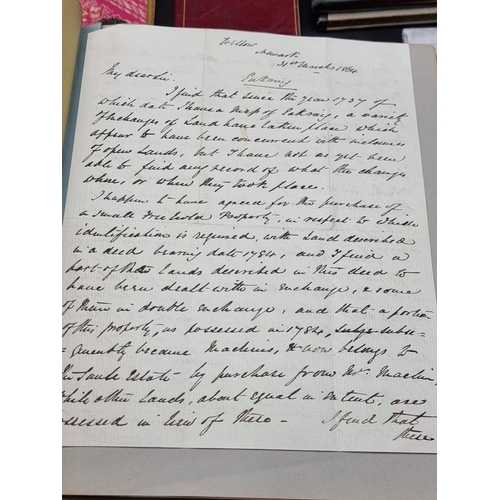 Newark
31st March 1864
My dear Sir
Eakring
I find that since the year 1737 of
which date I have a Map of Eakring, a variety
of Exchanges of Land have taken place which
appear to have been concurrent with inclosures
of open Lands, but I have not as yet been
able to find any record of what the changes
were, or when they took place.
I happen to have agreed for the purchase of
a small Freehold Property, in respect to which
identification is required, with Land described
in a deed bearing date 1784, and I find a
part of the Lands described in this deed to
have been dealt with in exchange, & some
of them in double exchange, and that a portion
of this property, as possessed in 1784, subse-
=quently became Machins, & now belongs to
the Savile Estate by purchase from Mr. Machin,
while other Lands, about equal in extent, are
possessed in lieu of these - I find that
there